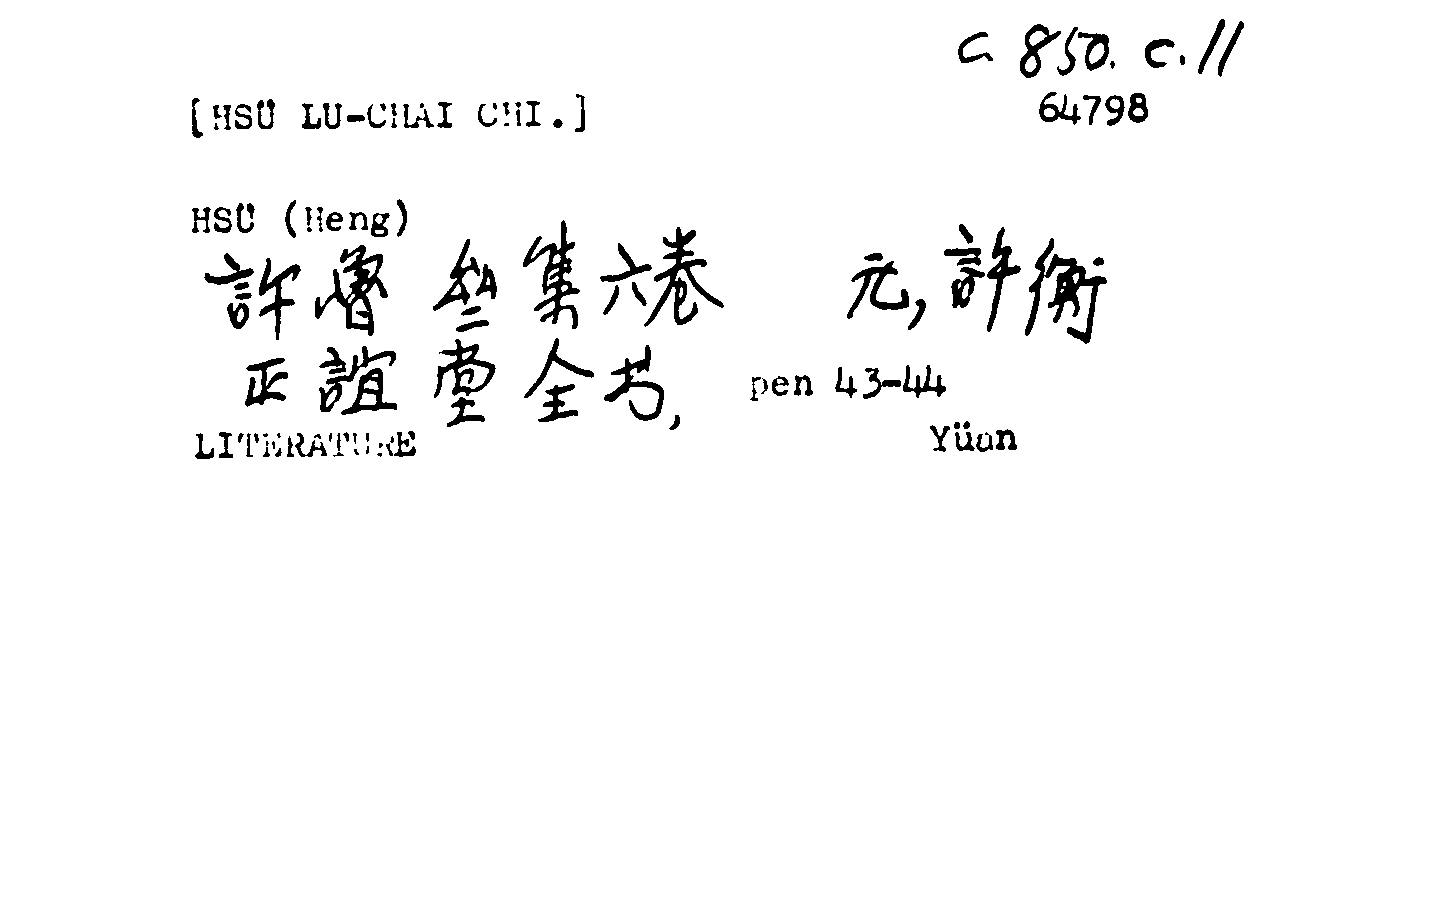 C 850. c. 11
64798
[HSÜ LU-CHAI CHI.]
HSÜ (Heng)
許魯叁集六卷 元, 許衡
正誼堂全书, pen 43-44
LITERATURE Yüan